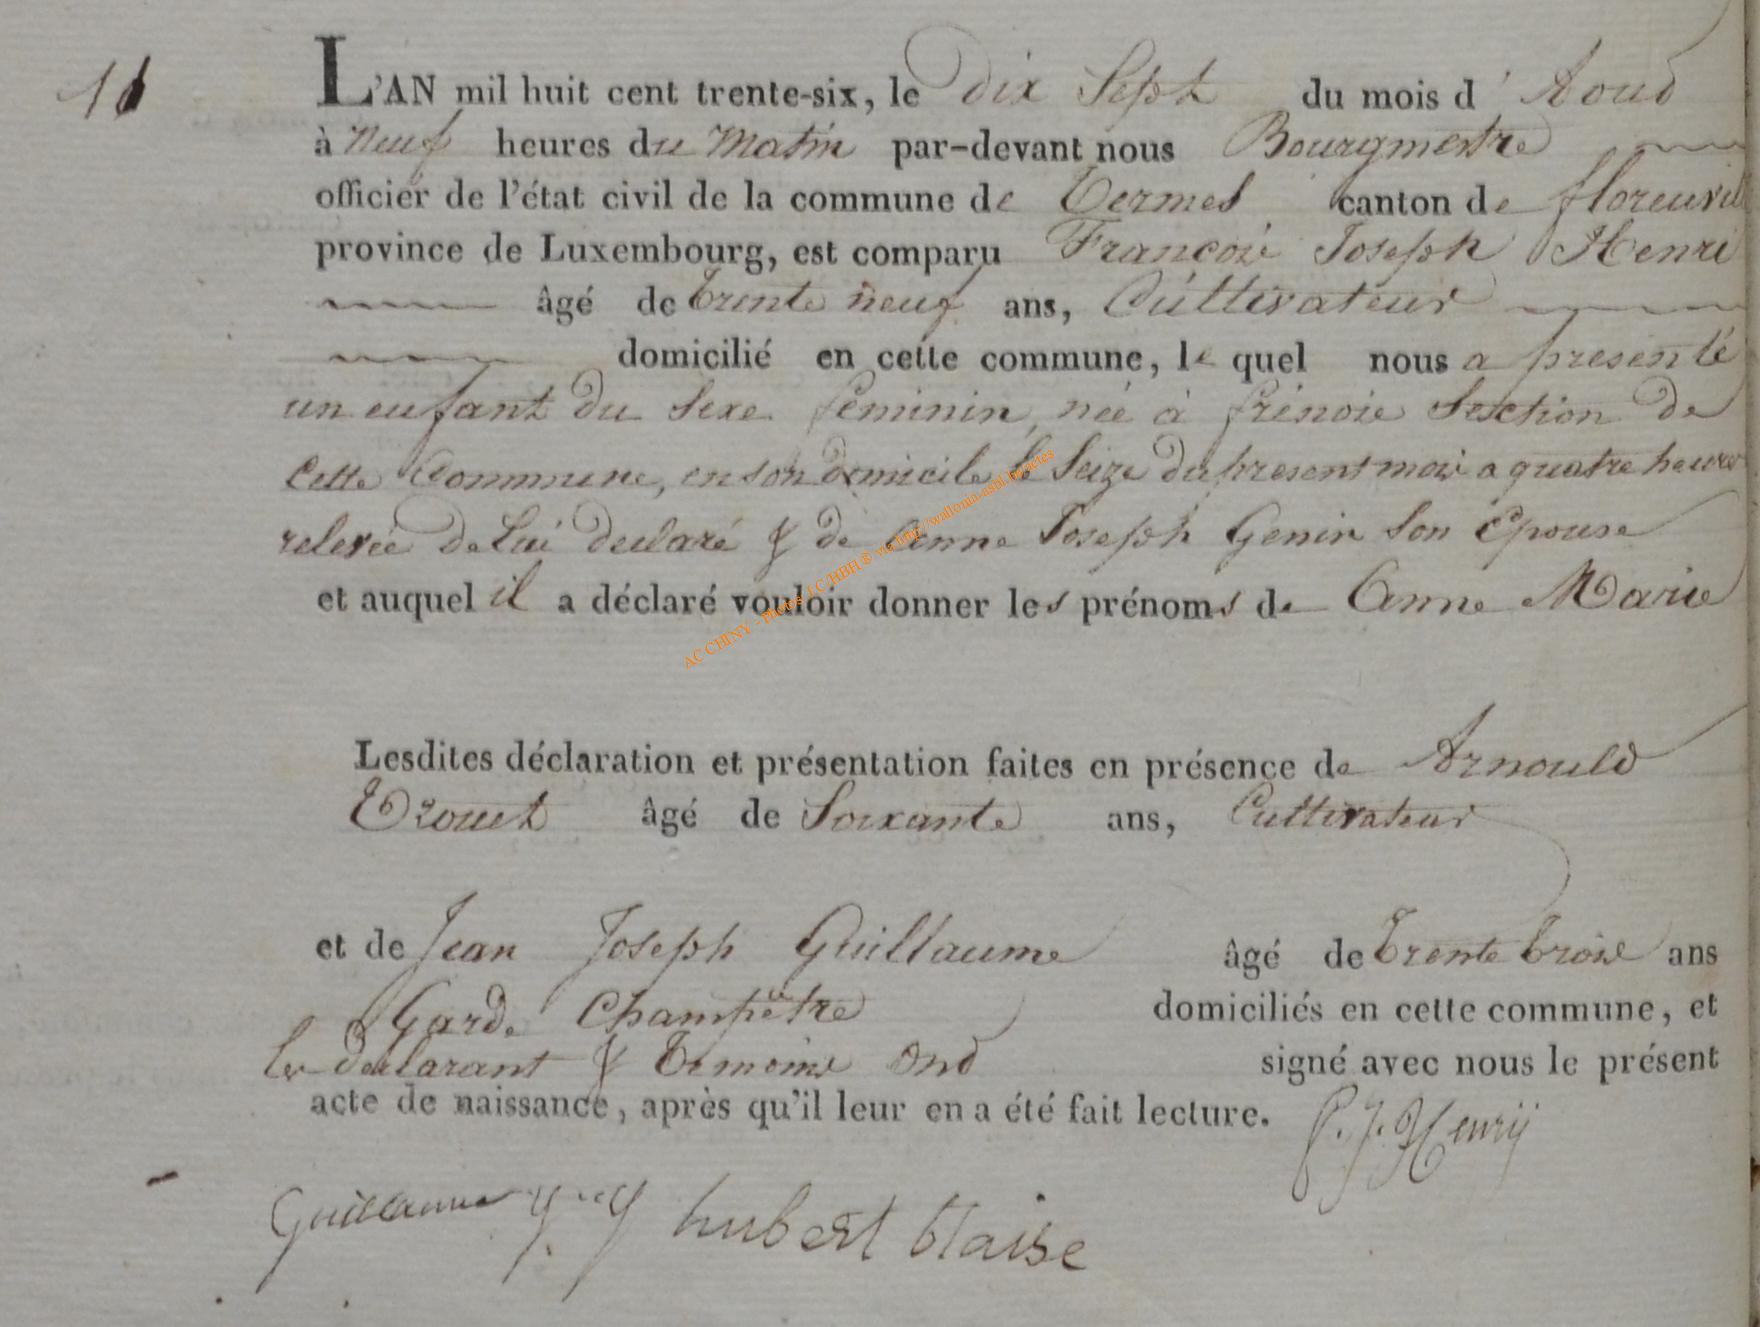 16
L'AN mil huit cent trente-six, le dix Sept du mois d' Aout
à neuf heures du Matin par-devant nous Bourgmestre
officier de l'état civil de la commune de Termes canton de florenvil
province de Luxembourg, est comparu François Joseph Henri
âgé de trente neuf ans, Cultivateur
domicilié en cette commune, le quel nous a presenté
un enfant du Sexe féminin, née à frénois Section de
Cette Commune, en son domicile le Seize du present mois a quatre heures
relevée de Lui declaré & de Anne Joseph Genin son Epouse
et auquel il a déclaré vouloir donner les prénoms de Anne Marie
Lesdites déclaration et présentation faites en présence de Arnould
Trouet âgé de Soixante ans, Cultivateur
et de Jean Joseph Guillaume âgé de trente trois ans
Garde Champêtre domiciliés en cette commune, et
les declarant & Temoins ont signé avec nous le présent
acte de naissance, après qu'il leur en a été fait lecture.
f. j. Henrij
Guillaume hubert blaise
AC CHINY - Photos J.C.HBH © via http://wallonia-asbl.be/actes